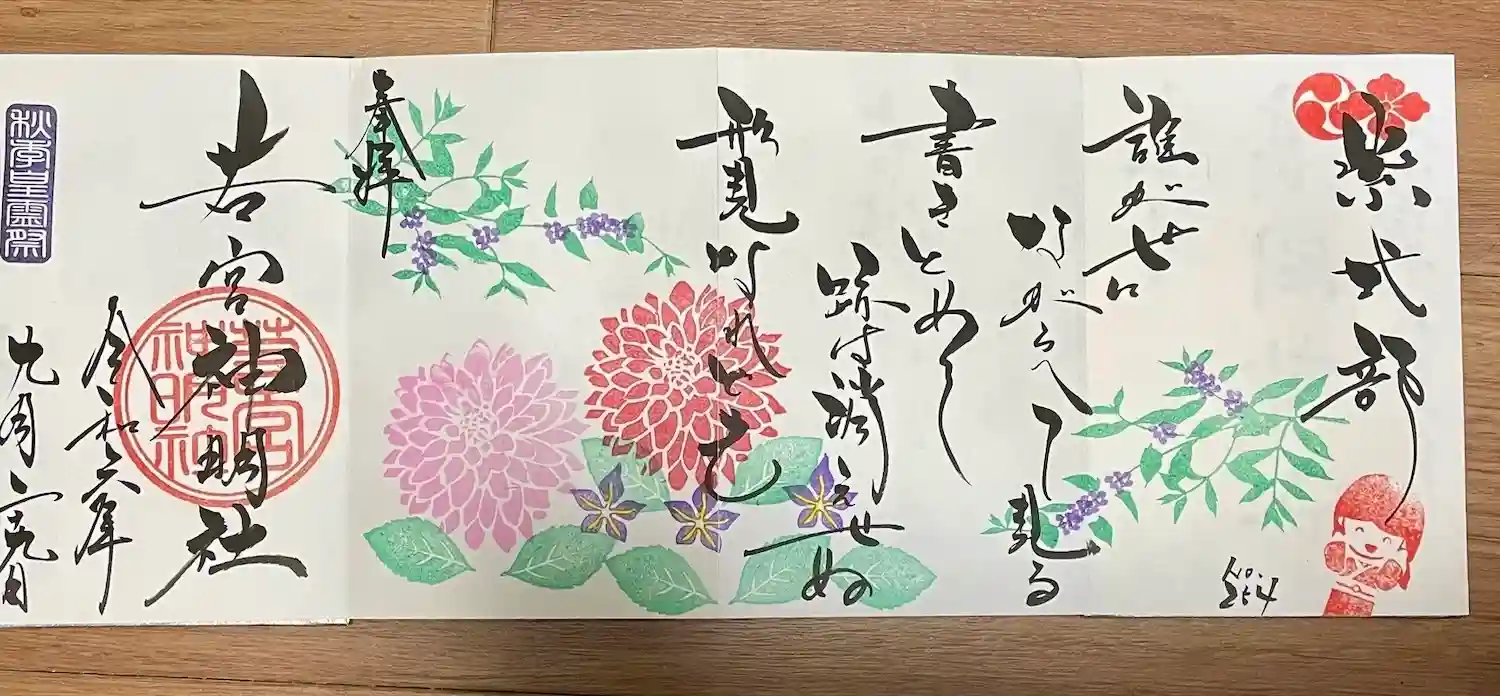 紫式部
誰が世に
ながらへて見る
書きとめし
跡は消えせぬ
形見なれども
No.264
奉拝
若宮神明社
令和六年
九月二十九日
秋季皇霊祭